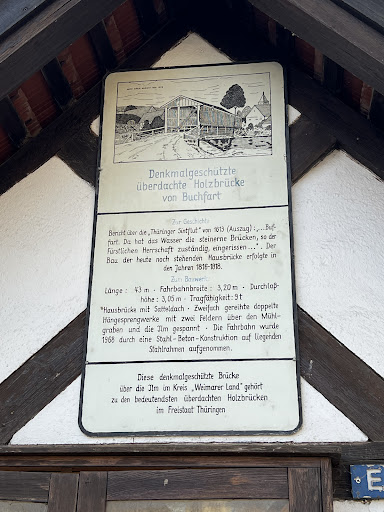 Denkmalgeschützte
überdachte Holzbrücke
von Buchfart
Zur Geschichte
Bericht über die „Thüringer Sintflut" von 1613 (Auszug): „...Buf-
fart. Da hat das Wasser die steinerne Brücken, so der
Fürstlichen Herrschaft zuständig, eingerissen...". Der
Bau der heute noch stehenden Hausbrücke erfolgte in
den Jahren 1816-1818.
Zum Bauwerk
Länge: 43 m · Fahrbahnbreite: 3,20 m · Durchlaß-
höhe: 3,05 m · Tragfähigkeit: 9t
Hausbrücke mit Satteldach · Zweifach gereihte doppelte
Hängesprengwerke mit zwei Feldern über den Mühl-
graben und die Ilm gespannt · Die Fahrbahn wurde
1968 durch eine Stahl-Beton-Konstruktion auf liegenden
Stahlrahmen aufgenommen.
Diese denkmalgeschützte Brücke
über die Ilm im Kreis „Weimarer Land" gehört
zu den bedeutendsten überdachten Holzbrücken
im Freistaat Thüringen
E